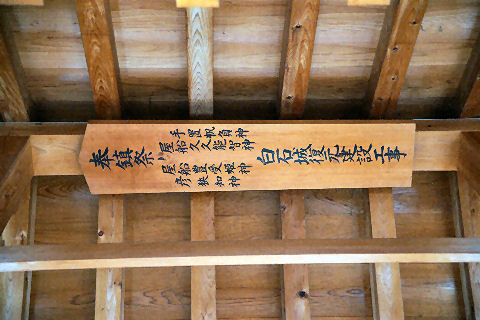 奉鎮祭
手置帆負神
屋船久久能智神
屋船豊受姫神
彦狭知神
白石城復元建設工事